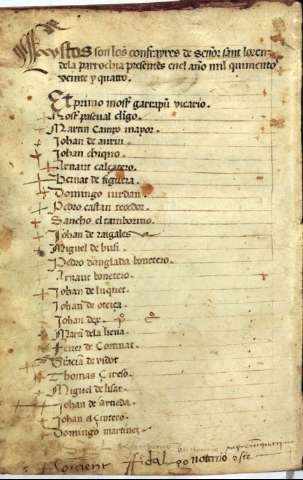 Aquestos son los confrayres de Señor sant lorenz
dela parrochia presentes enel año mil quinientos
veinte y quatro.
Et primo mossen garrapun vicario.
Mossen pascual cligo.
Martin Campo mayor.
Johan de
Johan chiquo.
Arnaut calçatero.
Bernat de figuera.
Domingo iurdan.
Pedro castan texedor.
Sancho el tamborino.
Johan de raigales
Miguel de busi.
Pedro danglada bonetero.
Arnaut bonetero.
Johan de luquet.
Johan de oteiça.
Johan dex
Martin dela
de Cortinat.
Garcia de vidot
Thomas
Miguel de lisar.
Johan de artieda.
Johan el cintero.
Domingo martinez.
notario